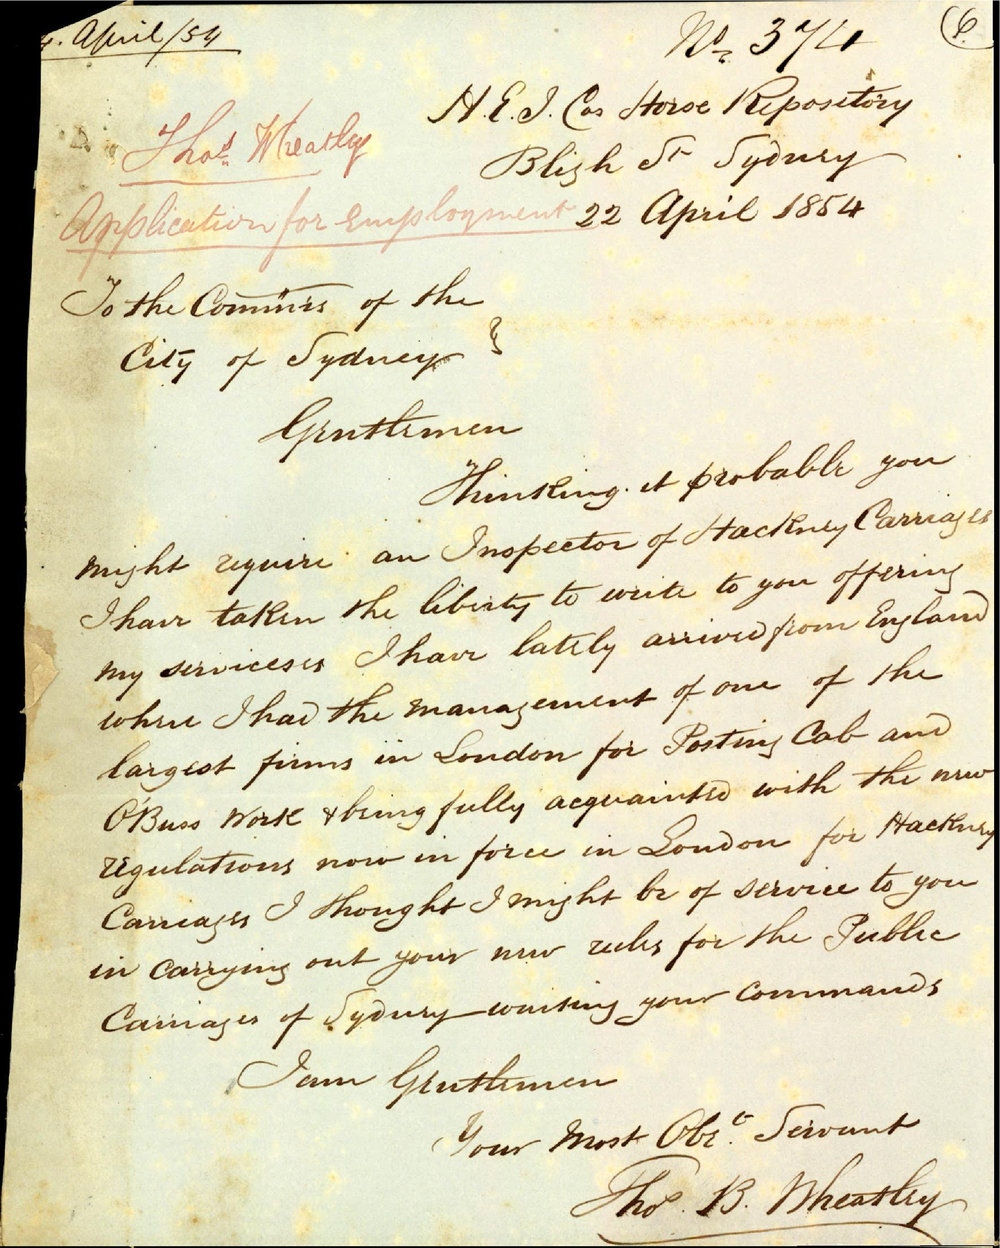 4. April/54
No. 374
6
H.E.I. Cos Horse Repository
Thos. Wheatley
Bligh St Sydney
Application for Employment
22 April 1854
To the Commrs of the
City of Sydney
Gentlemen
Thinking it probable you
might require an Inspector of Hackney Carriages
I have taken the liberty to write to you offering
my serviceses I have lately arrived from England
where I had the management of one of the
largest firms in London for Posting Cab and
O'Buss Work & being fully acquainted with the new
regulations now in force in London for Hackney
Carriages I thought I might be of service to you
in carrying out your new rules for the Public
Carriages of Sydney waiting your commands
I am Gentlemen
Your Most Obet. Servant
Thos. B. Wheatley